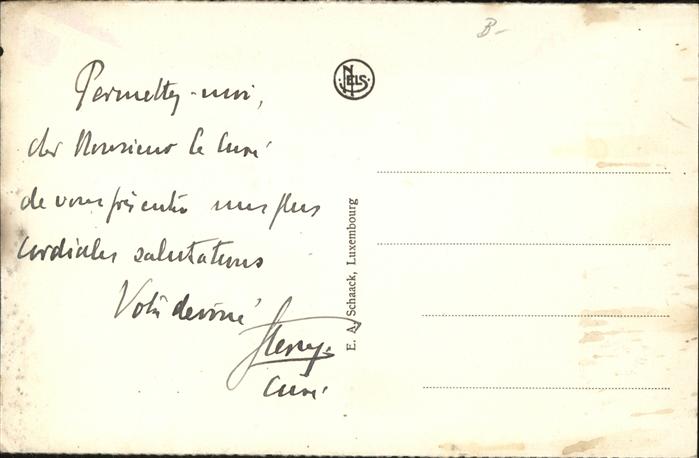 B-
NELS
Permettez-moi,
cher Monsieur le Curé
de vous présenter mes plus
cordiales salutations
Votre dévoué
Curé
E. A. Schaack, Luxembourg